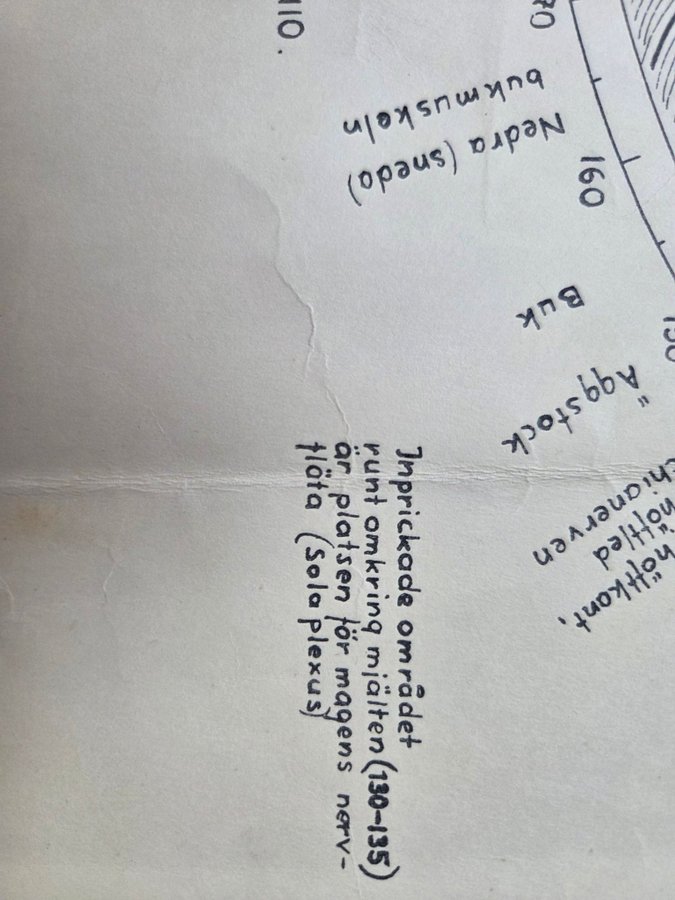 110.
70
Nedra (sneda)
bukmuskeln
160
Buk
Äggstock
höftkant,
höftled
Inprickade området
runt omkring mjälten (130-135)
är platsen för magens nerv-
flöta (Solaplexus)